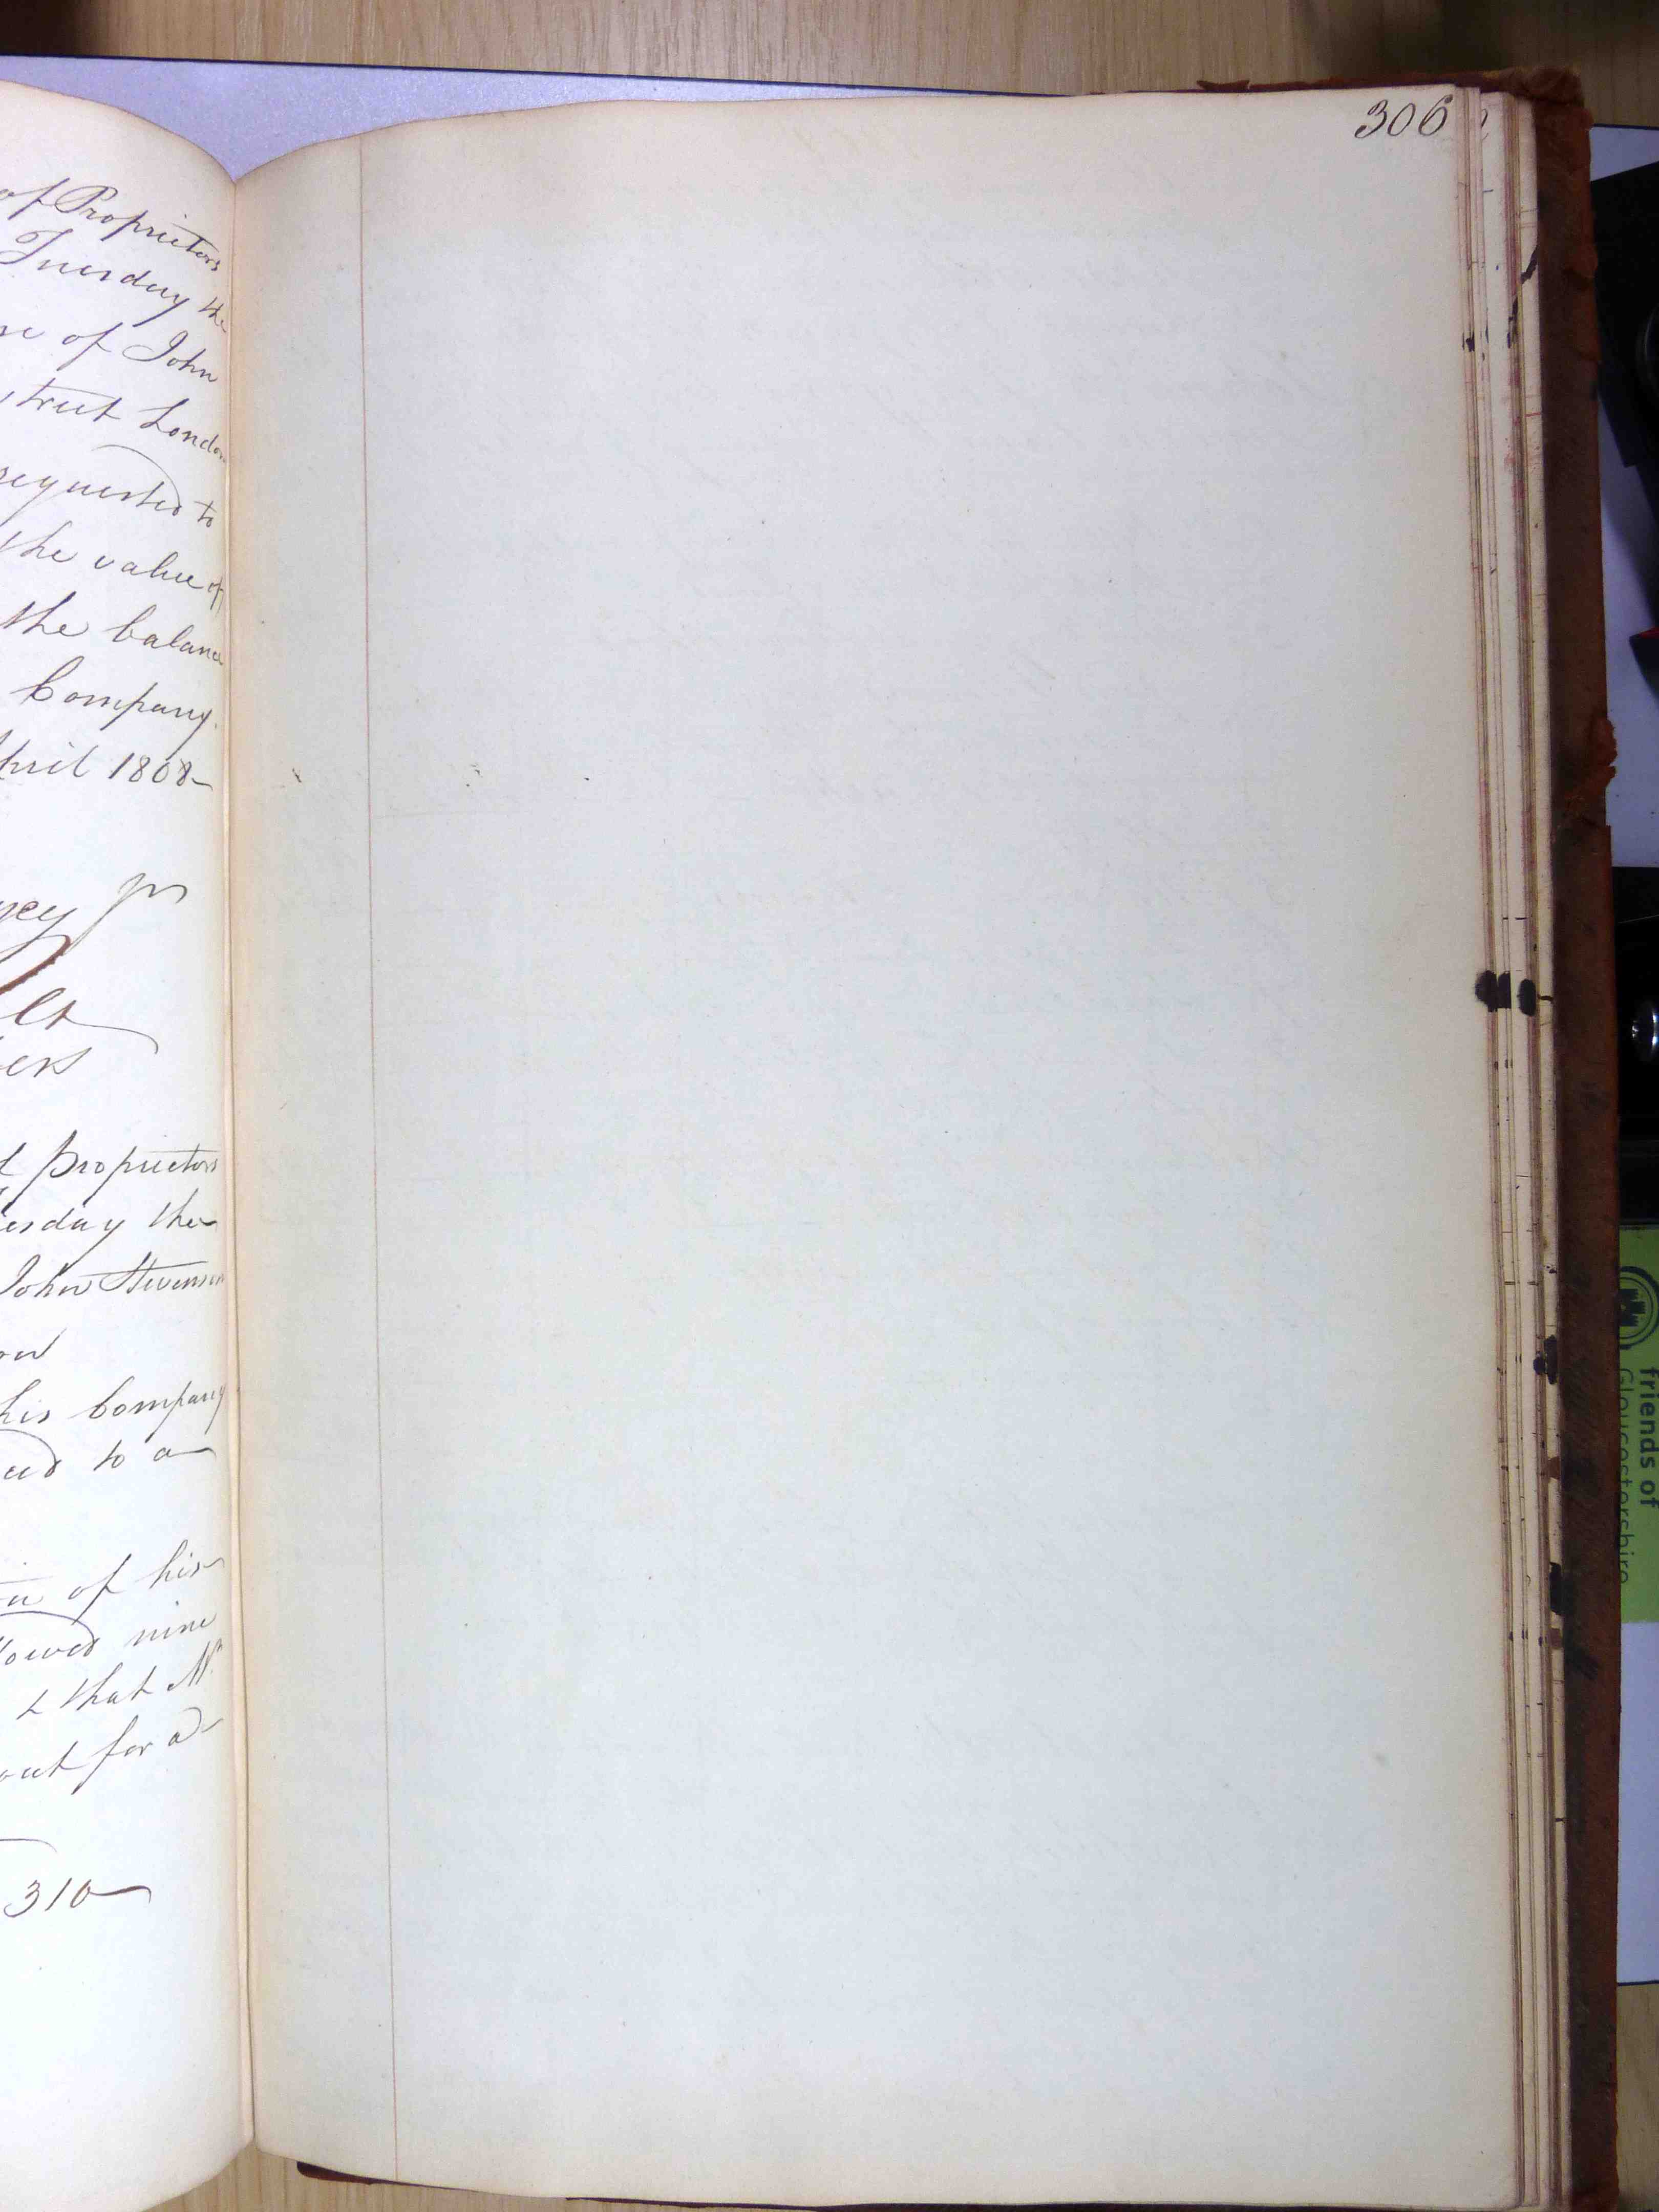 of Proprietors
Tuesday the
se of John
street London
requested to
the value of
the balance
Company.
April 1808
jr
ers
Proprietors
esday the
John Stevenson
his Company
to a
of his
lowed nine
that Mr
out for a
310
306
friends of
Gloucestershire